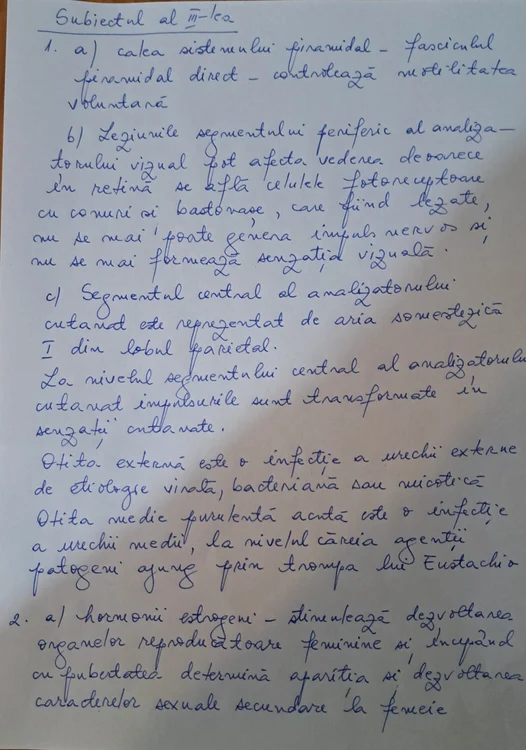 Subiectul al III-lea
1. a) calea sistemului piramidal - fasciculul
piramidal direct - controlează motilitatea
voluntară
b) Leziunile segmentului periferic al analiza-
torului vizual pot afecta vederea deoarece
în retină se află celulele fotoreceptoare
cu conuri și bastonașe, care fiind lezate,
nu se mai poate genera impuls nervos și
nu se mai formează senzația vizuală.
c) Segmentul central al analizatorului
cutanat este reprezentat de aria somestezică
I din lobul parietal.
La nivelul segmentului central al analizatorului
cutanat impulsurile sunt transformate în
senzații cutanate.
Otita externă este o infecție a urechii externe
de etiologie virală, bacteriană sau micotică
Otita medie purulentă acută este o infecție
a urechii medii, la nivelul căreia agenții
patogeni ajung prin trompa lui Eustachio
2. a) hormonii estrogeni - stimulează dezvoltarea
organelor reproducătoare feminine și, începând
cu pubertatea determină apariția și dezvoltarea
caracterelor sexuale secundare la femeie